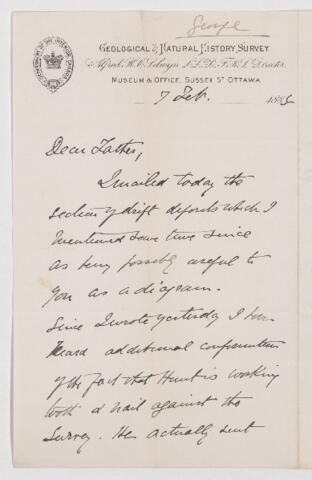 George
GEOLOGICAL & NATURAL HISTORY SURVEY
Alfred R. C. Selwyn, LL.D., F.R.S., Director.
MUSEUM & OFFICE, SUSSEX ST OTTAWA
7 Feb. 188
Dear Father,
I mailed today the
section of drift deposits which I
mentioned some time since
as being possibly useful to
you as a diagram.
Since I wrote yesterday I have
heard additional confirmation
of the fact that Hunt is working
tooth & nail against the
Survey. He actually sent